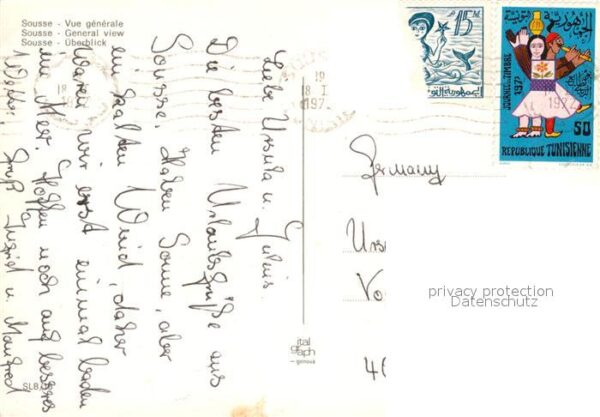 Sousse - Vue générale
Sousse - General view
Sousse - Überblick
Liebe Ursula u.
Die besten Urlaubsgrüße aus
Sousse. Haben Sonne, aber
ein kalten Wind, daher
waren wir erst einmal baden
im Meer. Hoffen noch auf besseres
Gruß Ingrid u. Manfred
18
1972
18 I
197
15
REPUBLIQUE TUNISIENNE
50
JOURNEE DU TIMBRE
1972
الجمهورية التونسية
Germany
4
ital
graph
- genova
SLB
privacy protection
Datenschutz